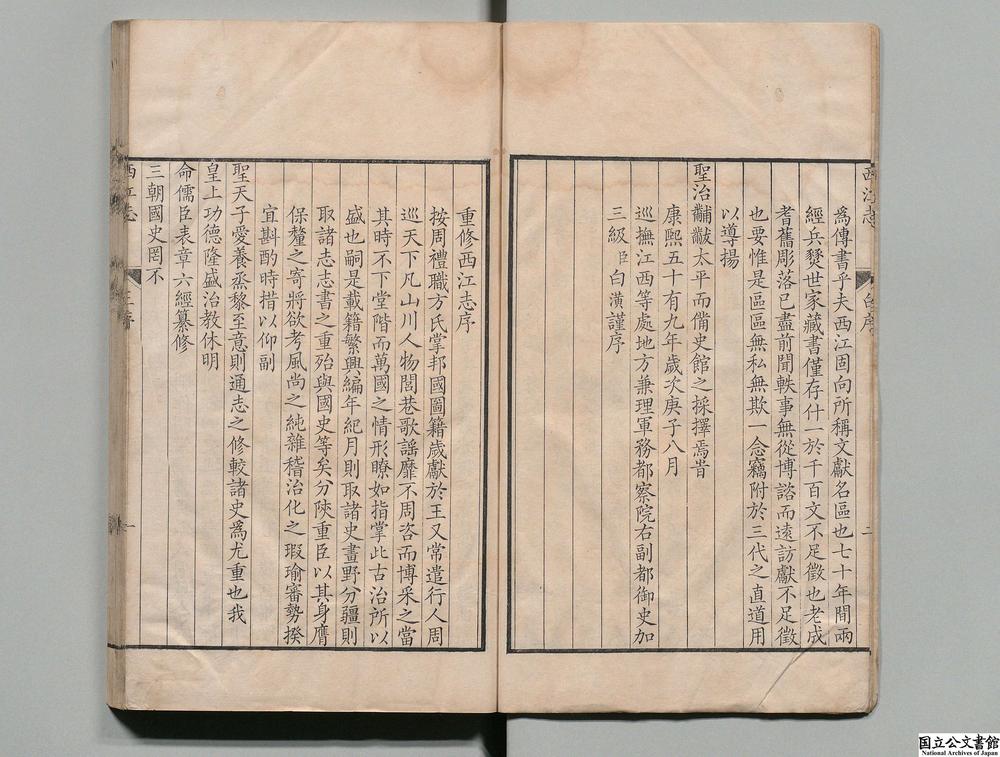 西江志 白序 二
爲傳書乎夫西江固向所稱文獻名區也七十年間兩
經兵燹世家藏書僅存什一於千百文不足徵也老成
耆舊彫落已盡前聞軼事無從博諮而遠訪獻不足徵
也要惟是區區無私無欺一念竊附於三代之直道用
以導揚
聖治黼黻太平而備史館之採擇焉旹
康熙五十有九年歲次庚子八月
巡撫江西等處地方兼理軍務都察院右副都御史加
三級臣白潢謹序
重修西江志序
按周禮職方氏掌邦國圖籍歲獻於王又常遣行人周
巡天下凡山川人物閭巷歌謠靡不周咨而博采之當
其時不下堂階而萬國之情形瞭如指掌此古治所以
盛也嗣是載籍繁興編年紀月則取諸史畫野分疆則
取諸志志書之重殆與國史等矣分陝重臣以其身膺
保釐之寄將欲考風尚之純雜稽治化之瑕瑜審勢揆
宜斟酌時措以仰副
聖天子愛養烝黎至意則通志之修較諸史爲尤重也我
皇上功德隆盛治教休明
命儒臣表章六經纂修
三朝國史罔不
西江志 序 一
国立公文書館
National Archives of Japan